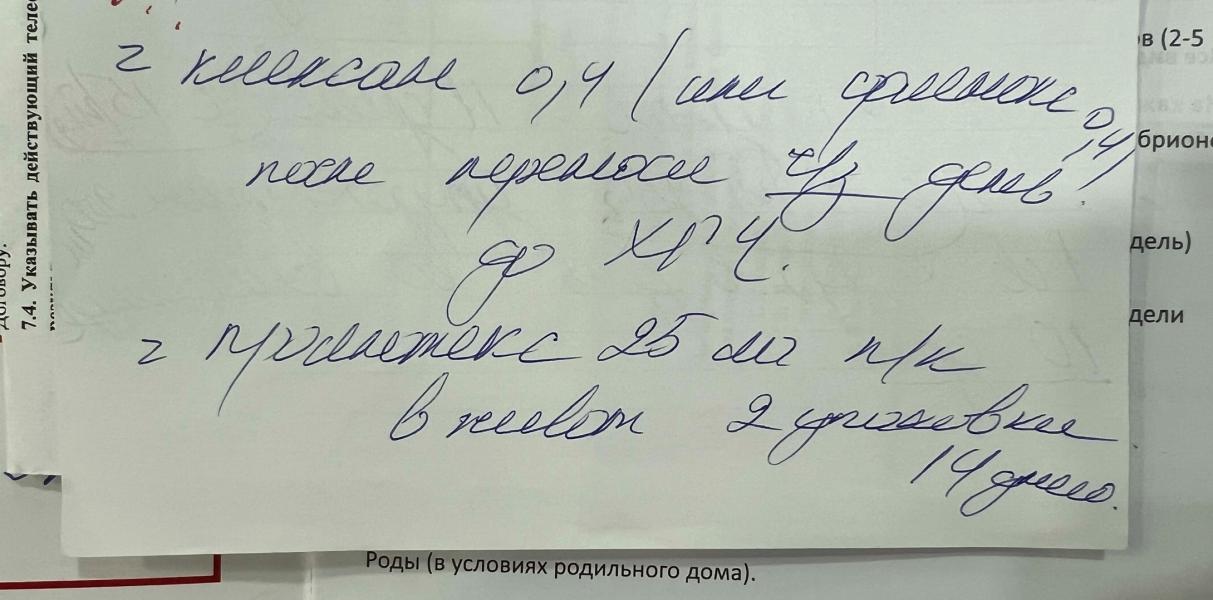 7.4. Указывать действующий теле
Договору.
в (2-5
брион
дель)
дели
г клексан 0,4 (или фленокс 0,4)
после переноса ч/з день
до ХГЧ.
г пролютекс 25 мг п/к
в живот 2 упаковки
14 дней.
Роды (в условиях родильного дома).